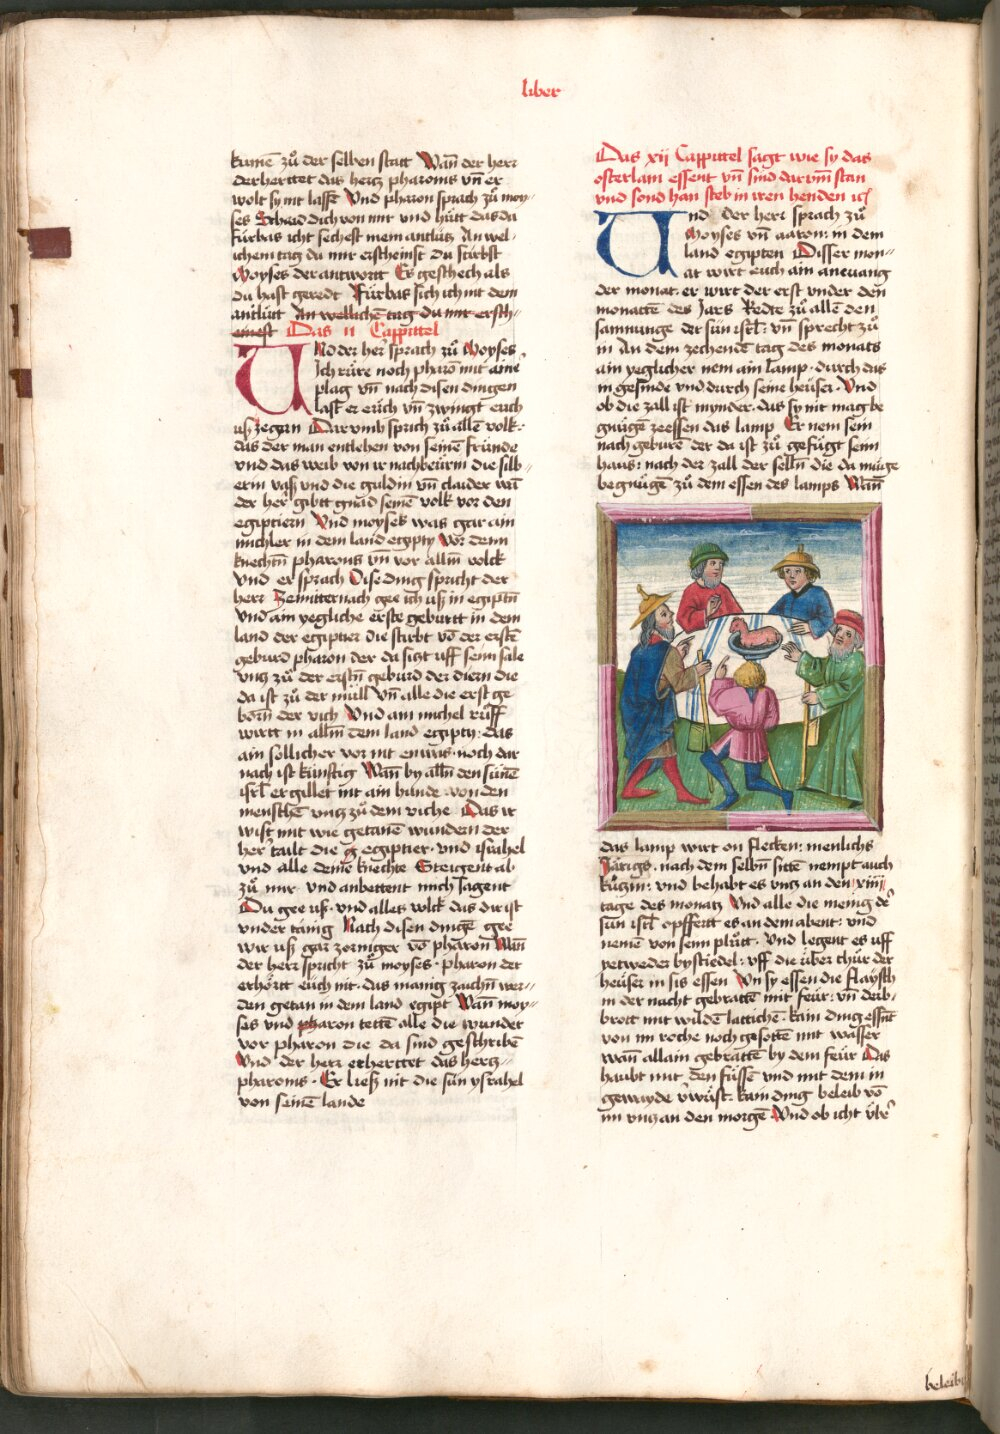 liber
kumē zů der selben statt Wañ der herr
derherttet das hertz pharonis vn̄ er
wolt sy nit lassē Vnd pharon sprach zů moy-
ses Schaid dich von mir vnd hütt das du
fürbas icht sechest mein antlütz An wel-
ichem tag du mir erscheinst Du stürbst
Moyses der antwortt Es geschech als
du hast geredt Fürbas sich ich nit dein
antlütt An wellichē tag du mir ersch-
einest Das 11 Cappittel
Und der her sprach zů Moyses
Ich rüre noch pharon mit aine
plag vn̄ nach disen dingen
last er eüch vn̄ zwingt euch
uß zegan Darumb sprich zů allē volk:
das der man entlehen von seinē fründe
vnd das weib von ir nachbeürin die silb-
erin vaß vnd die guldin vn̄ claider wañ
der her gibtt gnad seinē volk vor den
egiptiern Vnd moyses was gar ain
micheler in dem land egipty vor denn
knechtn̄ pharonis vn̄ vor allm̄ volck
vnd er sprach Dise ding spricht der
herr Ze mitternach gee ich uß in egiptn̄
vnd ain yegliche erste geburtt in dem
land der egiptier die stirbt vō der erstē
geburd pharon der da sitzt uff seim sale
vntz zů der erstn̄ geburd der diern die
da ist zů der müll vn̄ alle die erst ge
born̄ der vich Vnd ain michel rüff
wirtt in allm̄ dem land egipty: das
ain sollicher vor nit en was noch dar
nach ist künftig Wañ by alln̄ den sünē
isrł er gillet nit ain hunde von den
menschē vntz zů dem viche Das ir
wist mit wie getanē wundern der
her tailt die egiptier vnd israhel
vnd alle deine knechte Steigent ab
zů mir vnd anbettent mich sagent
Du gee uß vnd alles volck das dir ist
vnder tänig Nach disen dingē gee
wir uß gar zorniger vō pharon Wan
der herr spricht zů moyses pharon der
erhörtt eüch nit das mänig zaichn̄ wer-
den getan in dem land egipt Wañ moy-
ses vnd pharon tettē alle die wunder
vor pharon die da sind geschriben
Vnd der herr erherttet das hertz-
pharonis Er ließ nit die sün ysrahel
von seinē lande
Das xij Cappittel sagt wie sy das
osterlam essent vn̄ sind darum̄ stan
vnd sond han steb in iren henden ꝛc
Und der herr sprach zů
Moyses vn̄ aaron: in dem
land egipten Disser mon-
at wirt euch ain anevang
der monat. er wirt der erst vnder den
monatte des Jars Redte zů allē den
samnunge der sün isrł: vn̄ sprecht zů
in An dem zechendē tag des monats
ain yeglicher nem ain lamp durch das
in gesinde vnd durch seine heüser Vnd
ob die zall ist mynder das sy nit mag be
gnügē ze essen das lamp Er nem sein
nach geburē der da ist zů gefügt seim
haus: nach der zall der selln̄ die da müge
begnügē zů dem essen des lamps Wañ
das lamp wirt on flecken: menlichs
Järigs nach dem selbn̄ sittē nempt auch
kützin: vnd behabt es vntz an den xiiij
tage des monatz Vnd alle die menig de͛
sün isrł opffertt es an dem abent: vnd
nemē von seim plůtt Vnd legent es uff
yetweder bystiedel: vff die über thür der
heüser in sis essen Vn sy essen die flaysch
in der nacht gebratē mit feür: vn̄ derb-
brott mit wilde lattichē kain ding essn̄t
von im roche noch gesottē mit wasser
wañ allain gebratē by dem feür Das
haubt mit den füssen vnd mit dem in
gewayde v͛wüst. kain ding beleib vō
im vntz an den morgē Vnd ob icht v͛be͛
beleib